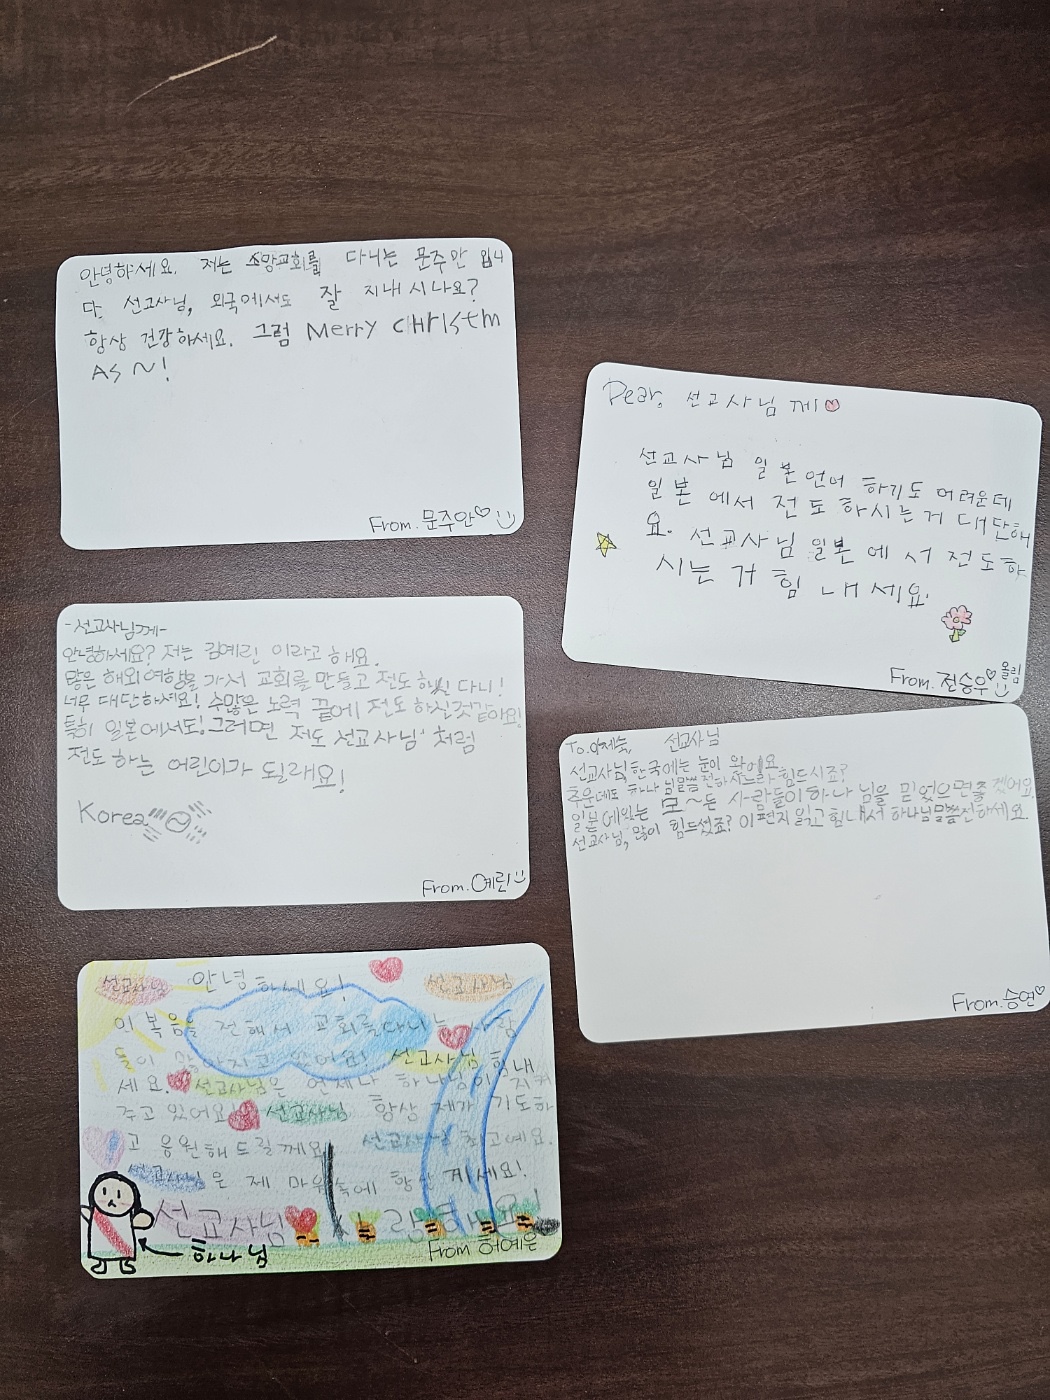 안녕하세요. 저는 소망교회를 다니는 문주안 입니
다. 선교사님, 외국에서도 잘 지내시나요?
항상 건강하세요. 그럼 Merry CHristm
As ~!
From. 문주안♡
Dear, 선교사님께
선교사님 일본언어 하기도 어려운데
일본에서 전도하시는거 대단해
요. 선교사님 일본에서 전도하
시는거 힘내세요
From. 전승우♡ 올림
-선교사님께-
안녕하세요? 저는 김예린 이라고 해요.
많은 해외여행을 가서 교회를 만들고 전도 하신다니!
너무 대단하세요! 수많은 노력 끝에 전도 하실것같아요!
특히 일본에서도! 그러면 저도 선교사님 처럼
전도 하는 어린이가 될래요!
Korea
From. 예린
To. 선교사님
선교사님 한국에는 눈이 왔어요
추운데도 하나님말씀 전하시느라 힘드시죠?
일본에있는 모~든 사람들이 하나님을 믿었으면 좋겟어요
선교사님, 많이 힘드셨죠? 이편지 읽고 힘내서 하나님말씀전하세요
From. 승연♡
선교사님 안녕하세요! 선교사님
이 복음을 전해서 교회를 다니는 사람
들이 많아지고 있어요! 선교사님 힘내
세요. 선교사님은 언제나 하나님이 지켜
주고 있어요 선교사님 항상 제가 기도하
고 응원해드릴께요 선교사님 최고예요.
선교사님은 제 마음속에 항상 계세요!
선교사님 사랑해요!
하나님
From 허예은